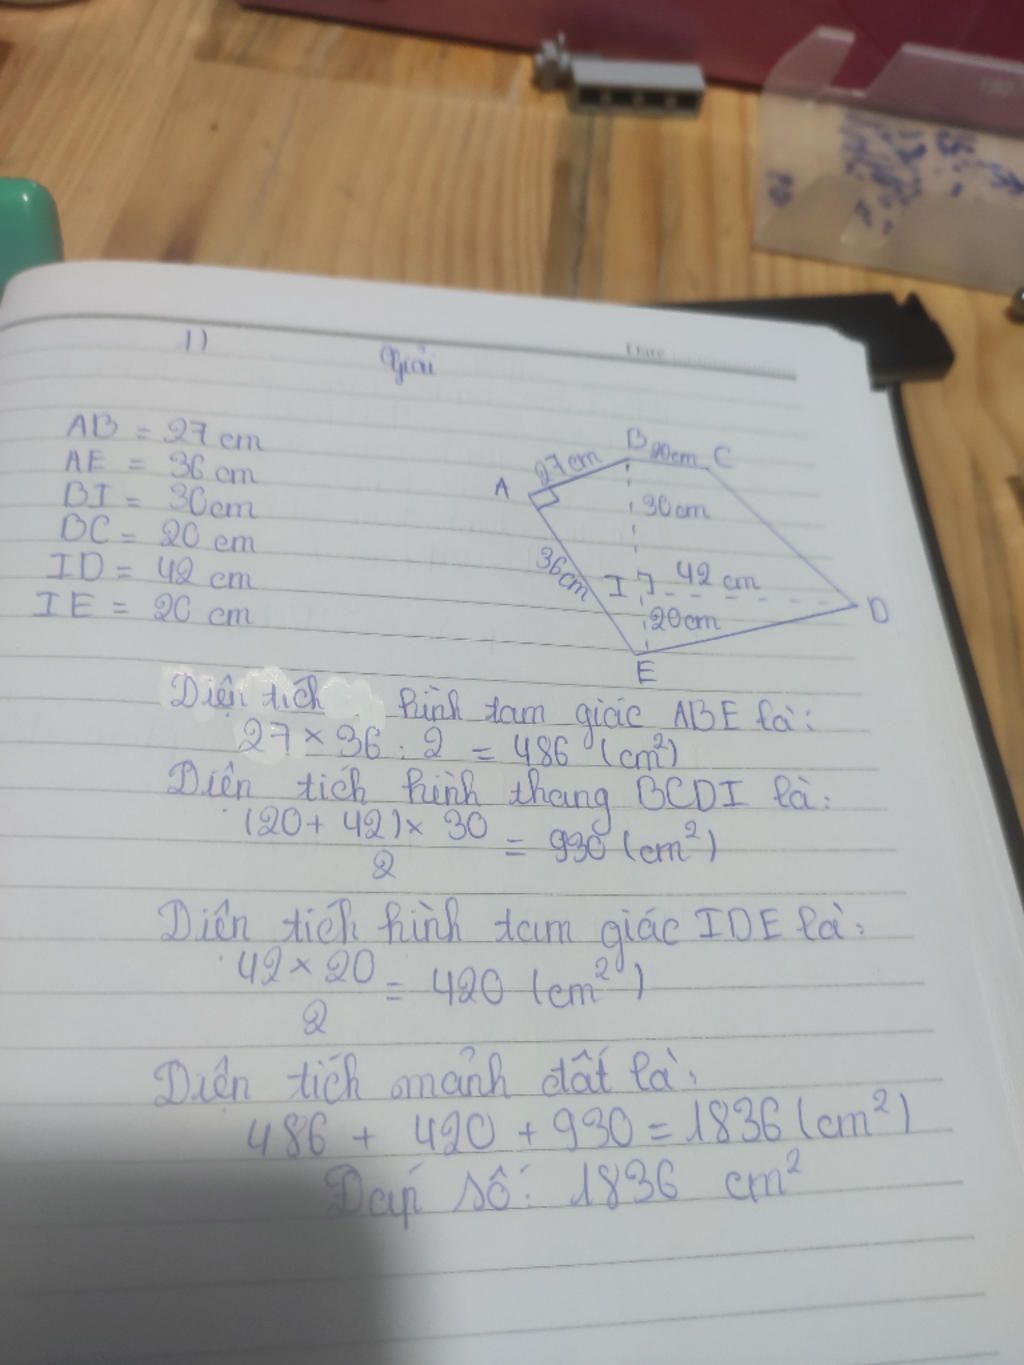 Date
1)
Giải
AB = 27 cm
AE = 36 cm
BI = 30cm
BC = 20 cm
ID = 42 cm
IE = 20 cm
B 20cm C
27cm
A
30cm
36cm
I 42 cm
D
20cm
E
Diện tích hình tam giác ABE là:
27 × 36 : 2 = 486 (cm²)
Diên tích hình thang BCDI là:
(20 + 42) × 30
= 930 (cm²)
2
Diên tích hình tam giác IDE là:
42 × 20
= 420 (cm²)
2
Diện tích mảnh đất là:
486 + 420 + 930 = 1836 (cm²)
Đáp số: 1836 cm²